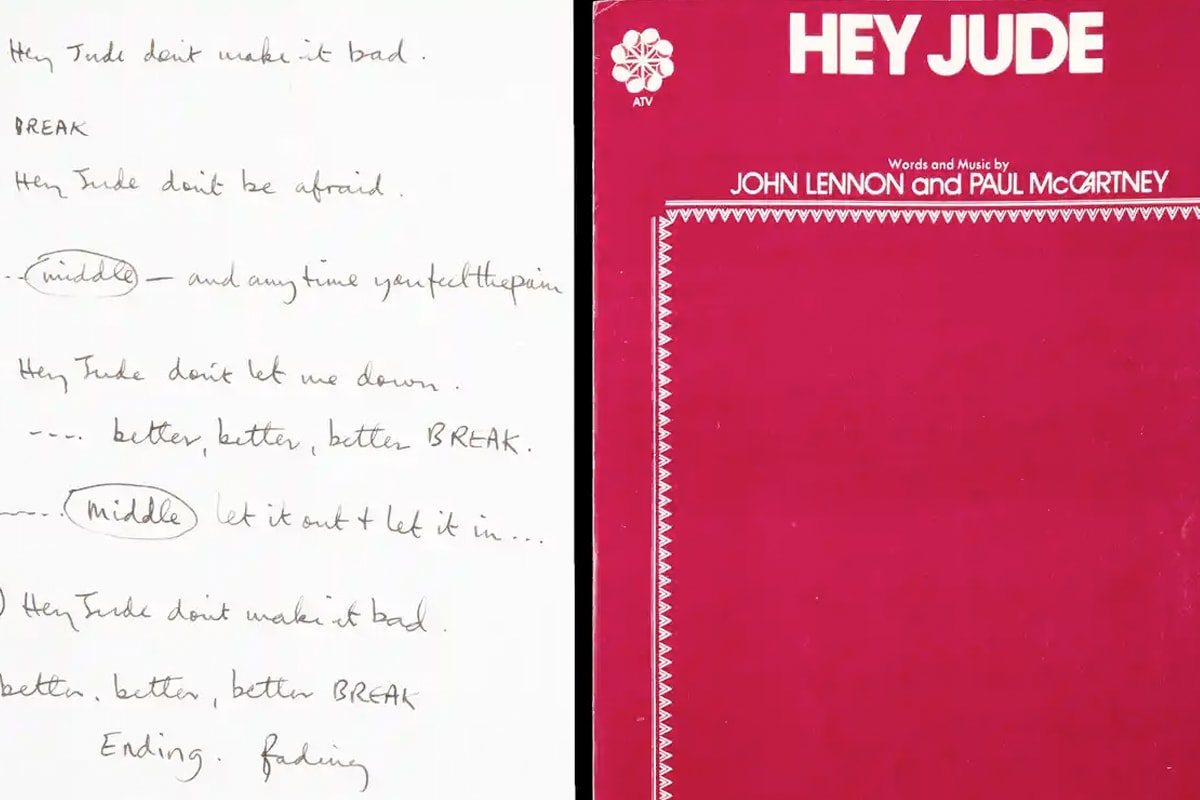 Hey Jude don't make it bad.
BREAK
Hey Jude don't be afraid.
-- middle — and any time you feel the pain
Hey Jude don't let me down.
---- better, better, better BREAK.
---- middle let it out + let it in ...
) Hey Jude don't make it bad.
better. better, better BREAK
Ending. fading
HEY JUDE
ATV
Words and Music by
JOHN LENNON and PAUL McCARTNEY